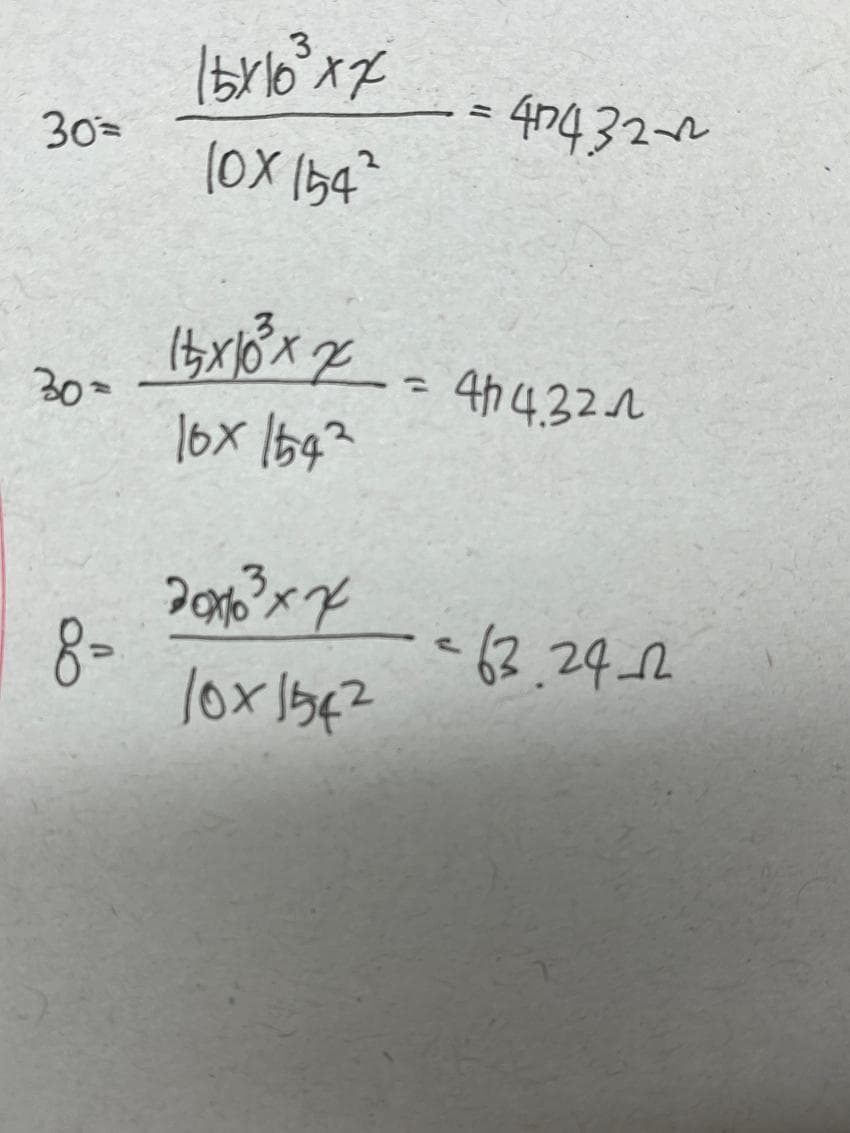 30 = 15×10³ × x / 10 × 154² = 474.32Ω
30 = 15×10³ × x / 10 × 154² = 474.32Ω
8 = 20×10³ × x / 10 × 154² = 63.24Ω